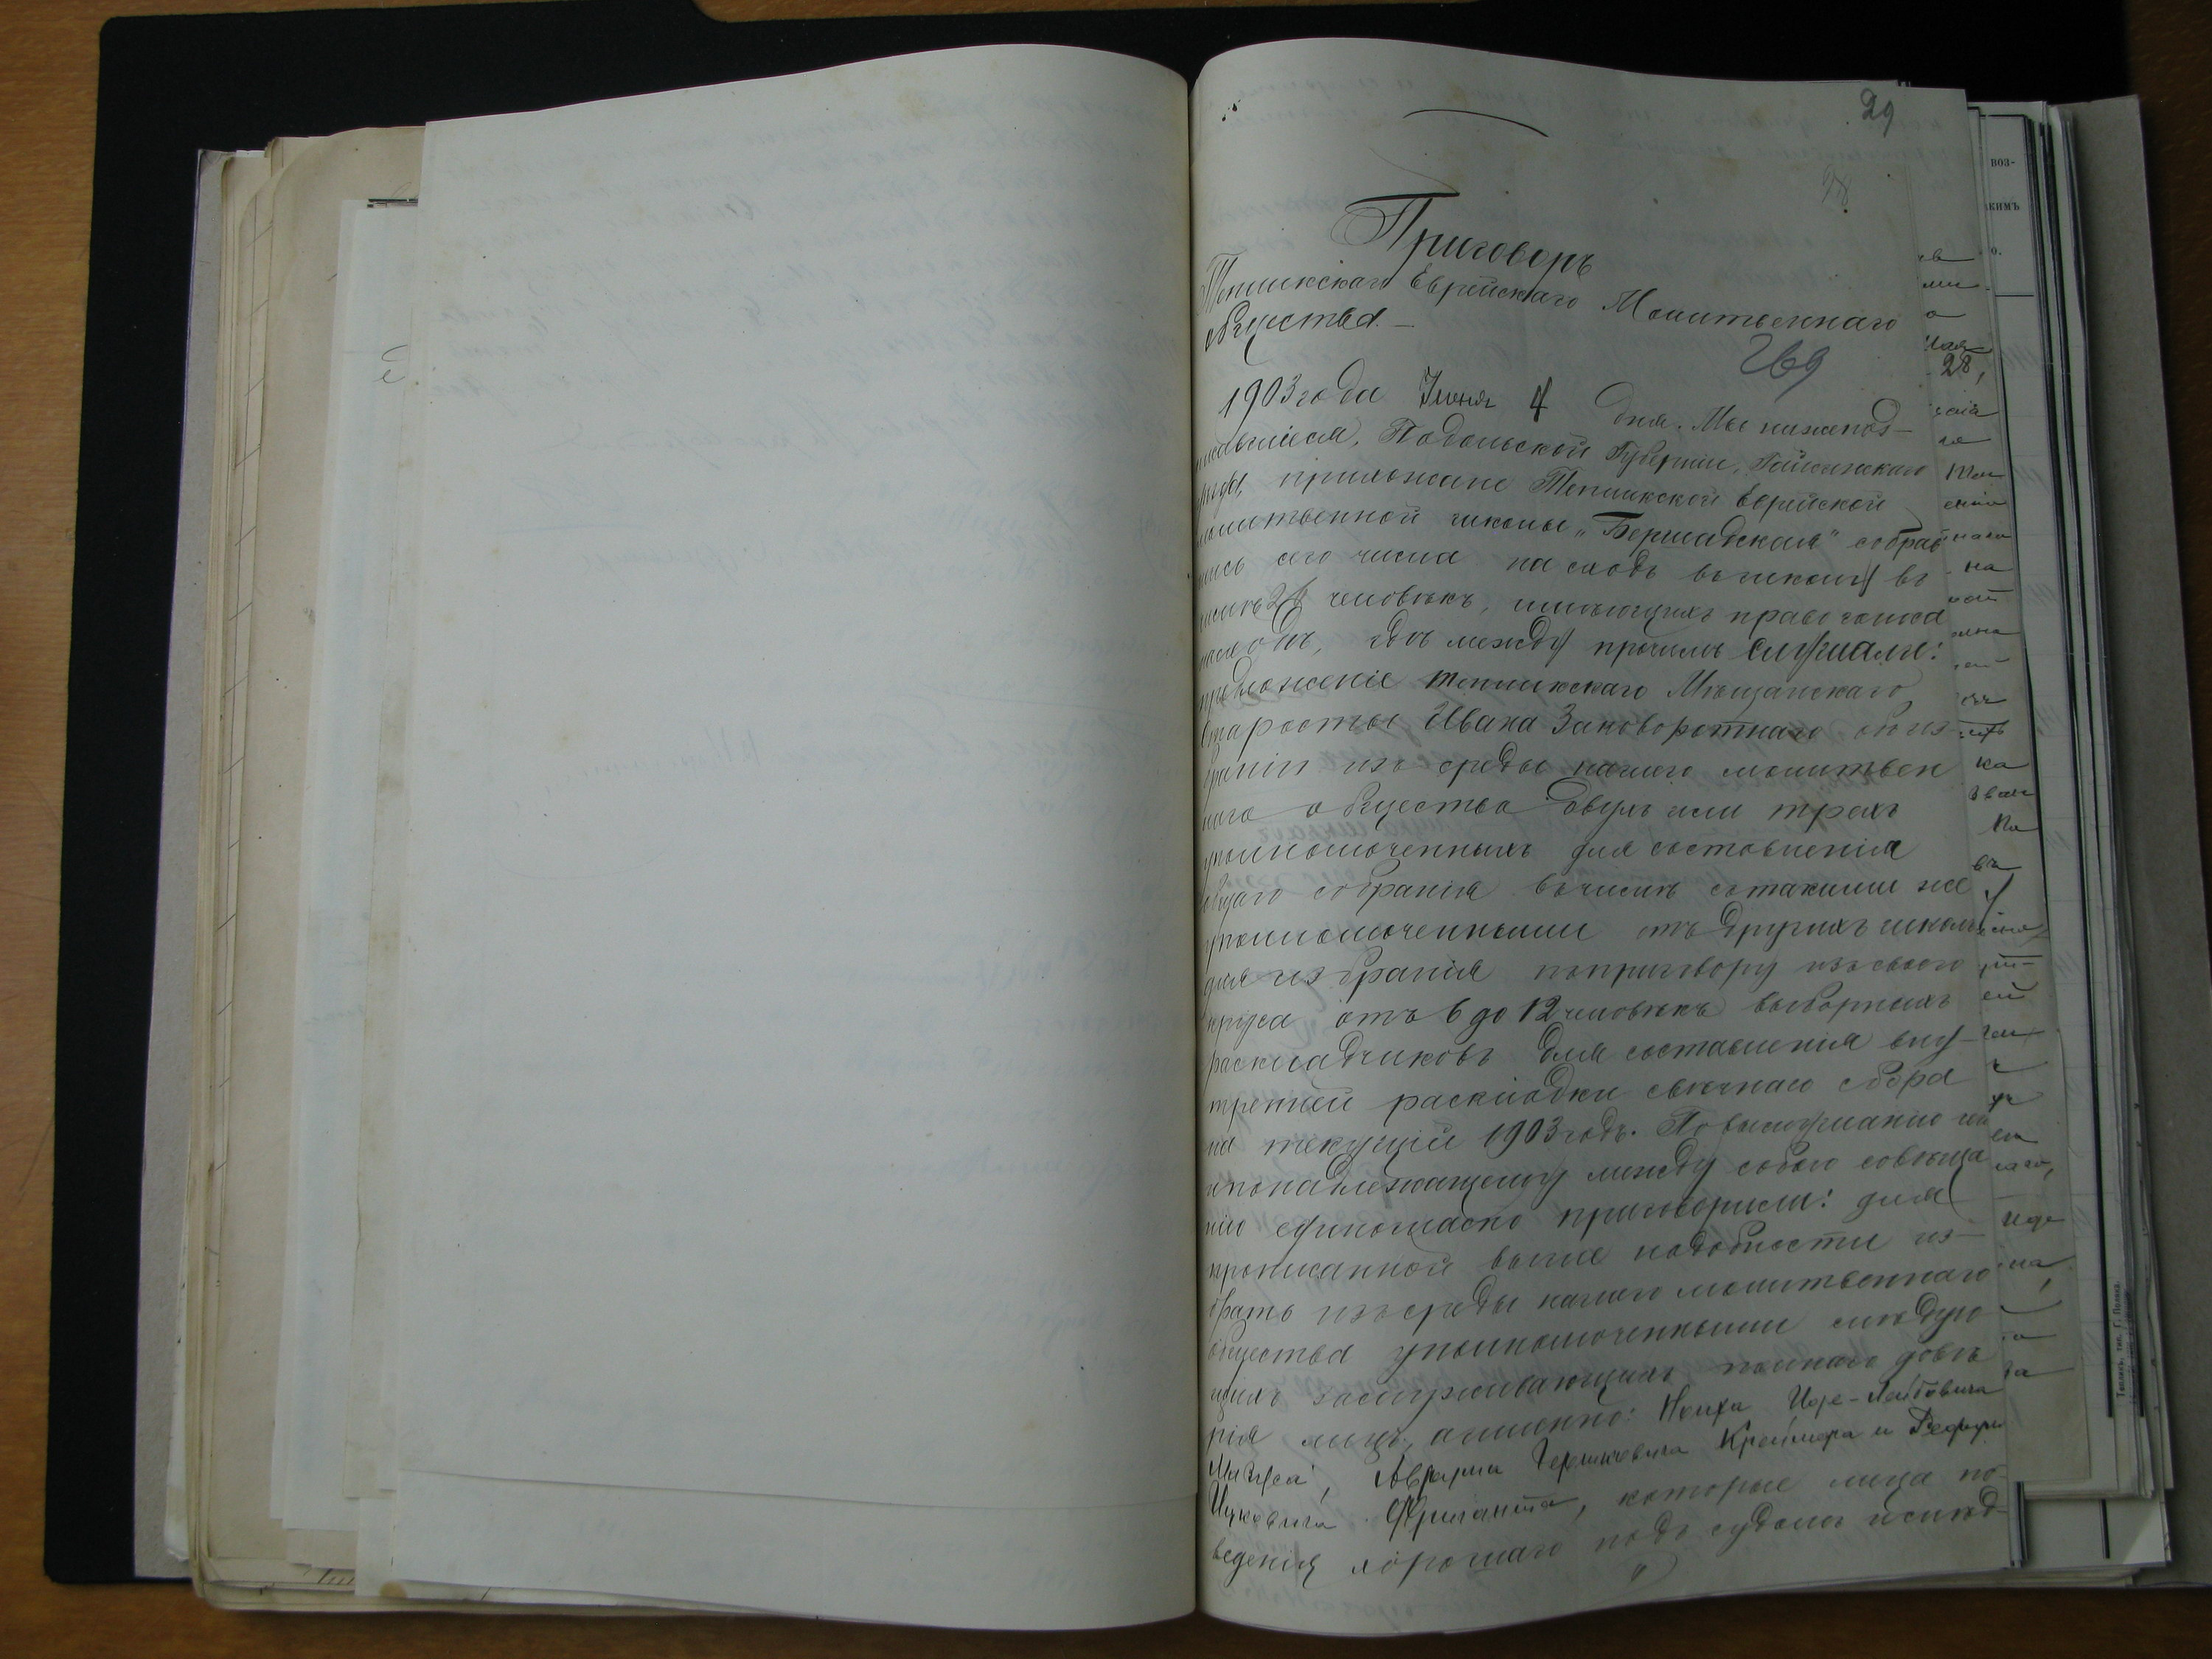 29
28
Приговоръ
Тепликскаго Еврейскаго Молитвеннаго
общества. —
269
1903 года Июня 4 дня. Мы нижепод-
писавшіеся, Подольской Губерніи, Гайсинскаго
уѣзда, прихожане Тепликской Еврейской
молитвенной школы „Бершадская" собрав
шись сего числа на сходъ въ школу въ
числѣ 28 человѣкъ, имѣющихъ право голоса
на сходѣ, гдѣ между прочимъ слушали:
предложеніе тепликскаго Мѣщанскаго
Старосты Ивана Заковоротнаго объ из-
браніи изъ среды нашего молитвен
наго общества двухъ или трехъ
уполномоченныхъ для составленія
общаго собранія въ числѣ съ такими же
уполномоченными отъ другихъ школъ
для избранія по приговору изъ своего
круга отъ 6 до 12 человѣкъ выборныхъ
раскладчиковъ для составленія вну-
тренней раскладки свѣчнаго сбора
на текущій 1903 годъ. По выслушанію
и по надлежащему между собою совѣща
нію единогласно приговорили: для
прописанной выше надобности из-
брать изъ среды нашего молитвеннаго
общества уполномоченными слѣдую
щихъ заслуживающихъ полнаго довѣ
рія лицъ, а именно: Иося-Лейбовича
Аврума Гершковича Креймера и
Ицковича которые лица по-
веденія хорошаго подъ судомъ и слѣд-
воз-
кимъ
о.
28,
на
ка
На
Иде
на,
Тепликъ, тип. Г. Поляка.